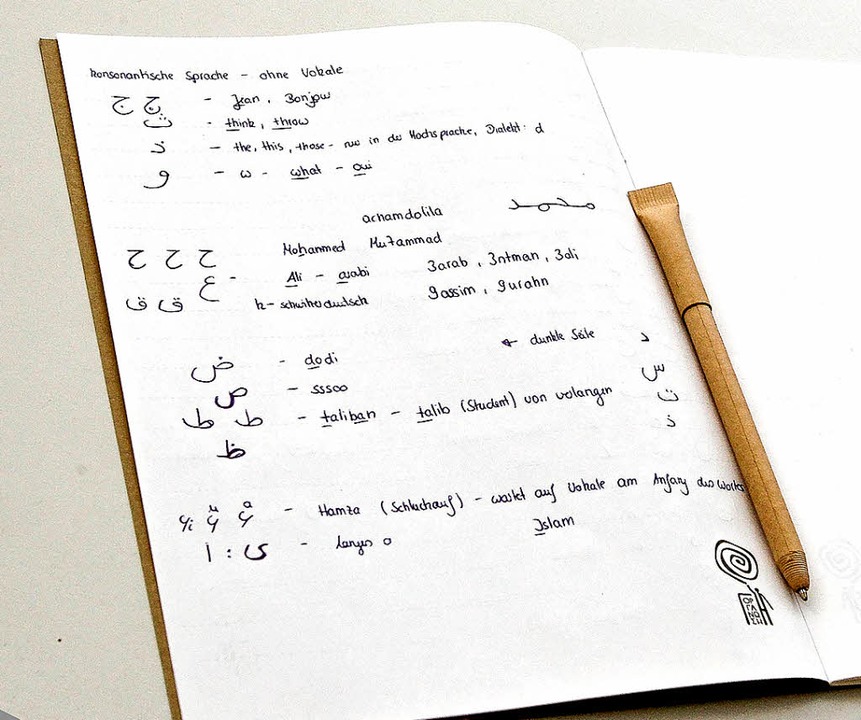 konsonantische Sprache - ohne Vokale
ج ج - Jean, Bonjour
ث - think, throw
ذ - the, this, those - nur in der Hochsprache, Dialekt: d
و - w - what - oui
achamdolila محمد
ح ح ح Mohammed Mu7ammad
ع - Ali - arabi 3arab, 3ntman, 3ali
ق ق k - schwiherdeutsch 9assim, 9urahn
← dunkle Seite د
ض - dodi س
ص - sssoo ت
ط ط - taliban - talib (Student) von verlangen ذ
ظ
ء ء ء - Hamza (Schluckauf) - wartet auf Vokale am Anfang des Wortes
ا : ى - langes a Islam